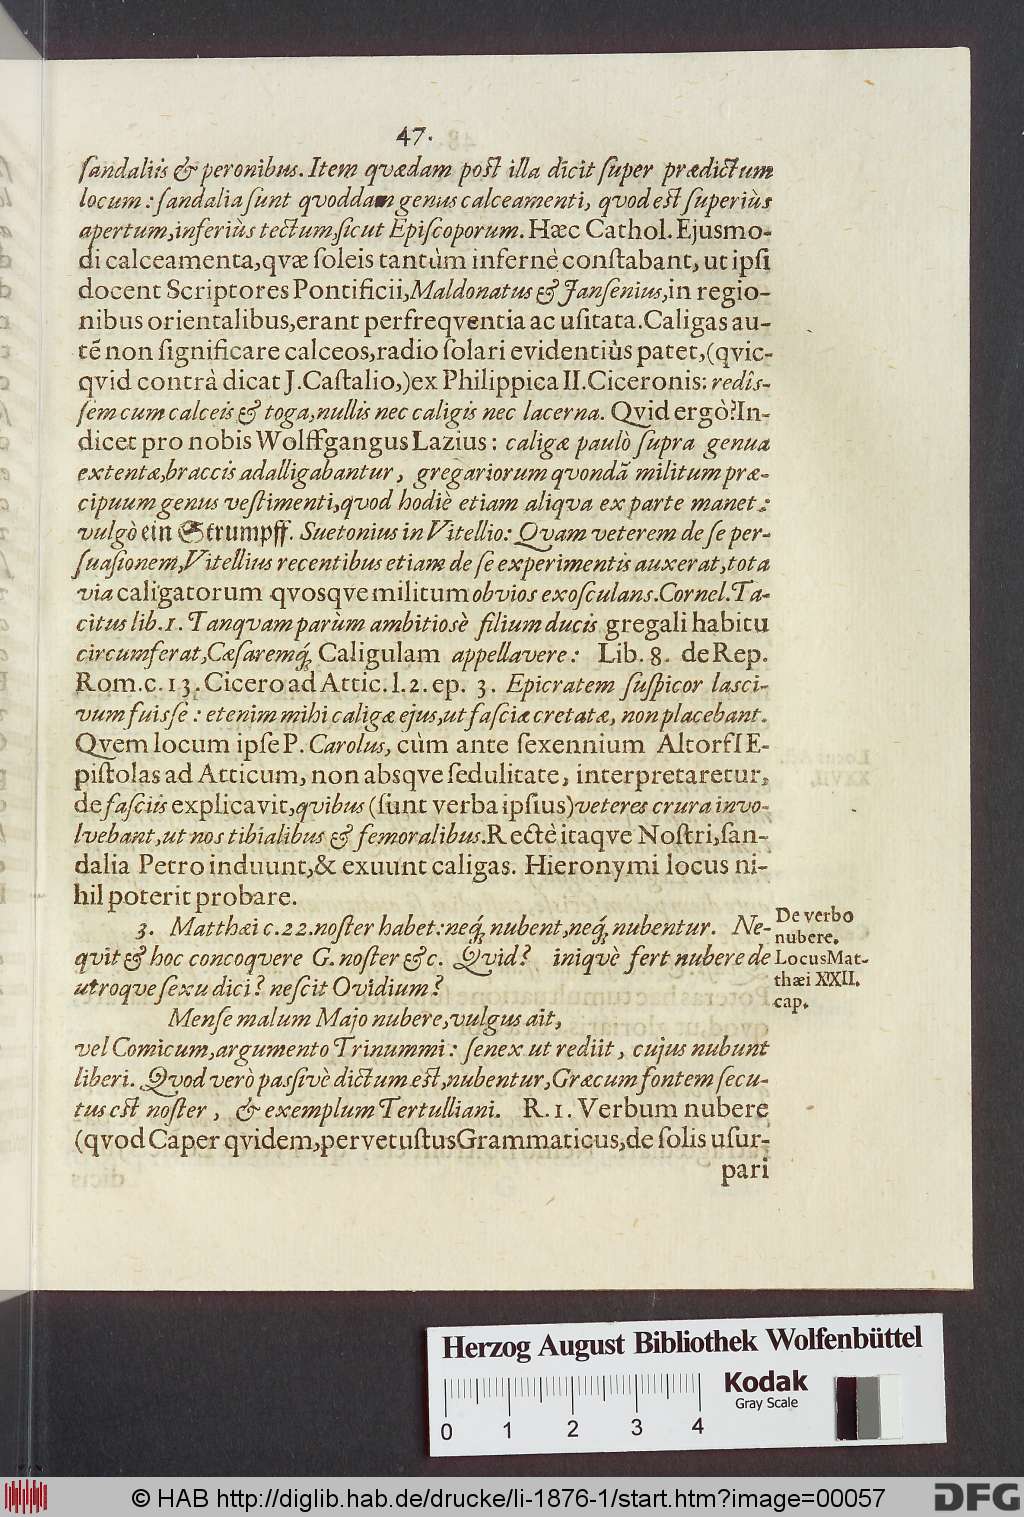 47.
ſandaliis & peronibus. Item qvædam poſt illa dicit ſuper prædictum
locum : ſandalia ſunt qvoddam genus calceamenti, qvod eſt ſuperiùs
apertum, inferiùs tectum, ſicut Epiſcoporum. Hæc Cathol. Ejusmo-
di calceamenta, qvæ ſoleis tantùm infernè conſtabant, ut ipſi
docent Scriptores Pontificii, Maldonatus & Janſenius, in regio-
nibus orientalibus, erant perfreqventia ac uſitata. Caligas au-
tē non ſignificare calceos, radio ſolari evidentiùs patet, (qvic-
qvid contrà dicat J. Caſtalio,) ex Philippica II. Ciceronis: redîſ-
ſem cum calceis & toga, nullis nec caligis nec lacerna. Qvid ergò? In-
dicet pro nobis Wolffgangus Lazius : caligæ paulò ſupra genua
extentæ, braccis adalligabantur, gregariorum qvondā militum præ-
cipuum genus veſtimenti, qvod hodiè etiam aliqva ex parte manet :
vulgò ein Strumpff. Suetonius in Vitellio: Qvam veterem de ſe per-
ſuaſionem, Vitellius recentibus etiam de ſe experimentis auxerat, tota
via caligatorum qvosqve militum obvios exoſculans. Cornel. Ta-
citus lib. 1. Tanqvam parùm ambitiosè filium ducis gregali habitu
circumferat, Cæſaremq́; Caligulam appellavere : Lib. 8. de Rep.
Rom. c. 13. Cicero ad Attic. l. 2. ep. 3. Epicratem ſuſpicor laſci-
vum fuisſe : etenim mihi caligæ ejus, ut faſciæ cretatæ, non placebant.
Qvem locum ipſe P. Carolus, cùm ante ſexennium Altorfl E-
piſtolas ad Atticum, non absqve ſedulitate, interpretaretur,
de faſciis explicavit, qvibus (ſunt verba ipſius) veteres crura invo-
lvebant, ut nos tibialibus & femoralibus. Rectè itaqve Noſtri, ſan-
dalia Petro induunt, & exuunt caligas. Hieronymi locus ni-
hil poterit probare.
3. Matthæi c. 22. noſter habet : neq́; nubent, neq́; nubentur. Ne-
qvit & hoc concoqvere G. noſter &c. Qvid? iniqvè fert nubere de
utroqve ſexu dici? neſcit Ovidium?
De verbo
nubere.
Locus Mat-
thæi XXII.
cap.
Menſe malum Majo nubere, vulgus ait,
vel Comicum, argumento Trinummi : ſenex ut rediit, cujus nubunt
liberi. Qvod verò paſsivè dictum eſt, nubentur, Græcum fontem ſecu-
tus eſt noſter, & exemplum Tertulliani. R. 1. Verbum nubere
(qvod Caper qvidem, pervetuſtus Grammaticus, de ſolis uſur-
pari
Herzog August Bibliothek Wolfenbüttel
Kodak
Gray Scale
0 1 2 3 4
© HAB http://diglib.hab.de/drucke/li-1876-1/start.htm?image=00057
DFG